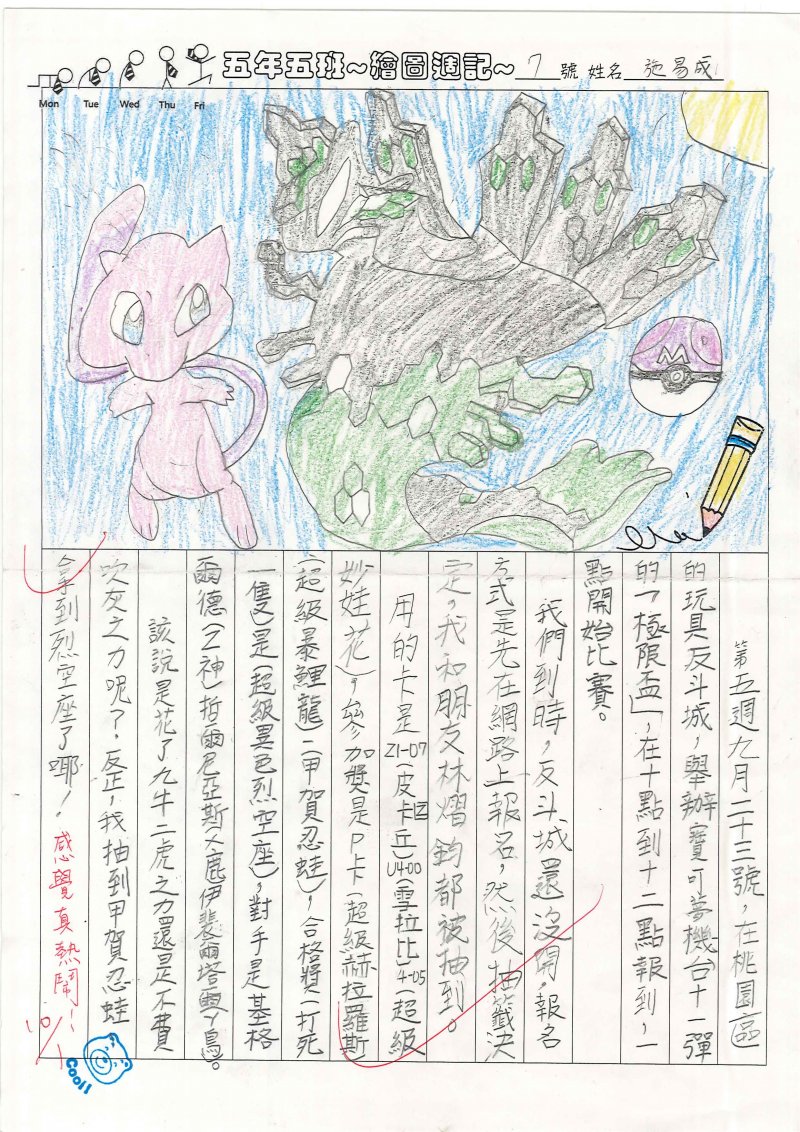 五年五班~繪圖週記~ 7 號 姓名 施易成
Mon Tue Wed Thu Fri
M
第五週九月二十三號，在桃園區
的玩具反斗城，舉辦寶可夢機台十一彈
的「極限盃」，在十點到十二點報到，一
點開始比賽。
我們到時，反斗城還沒開，報名
方式是先在網路上報名，然後抽籤決
定，我和朋友林熠鈞都被抽到。
用的卡是Z1-07(皮卡丘)U4-00(雪拉比)4-05超級
妙娃花)，參加獎是P卡(超級赫拉羅斯
(超級暴鯉龍)二(甲賀忍蛙)，合格獎(打死
一隻)是(超級異色烈空座)，對手是基格
爾德(Z神)哲爾尼亞斯X鹿伊裴爾塔爾Y鳥。
該說是花了九牛二虎之力還是不費
吹灰之力呢？反正，我抽到甲賀忍蛙
拿到烈空座了耶！
感覺真熱鬧！
10/1
Cool!